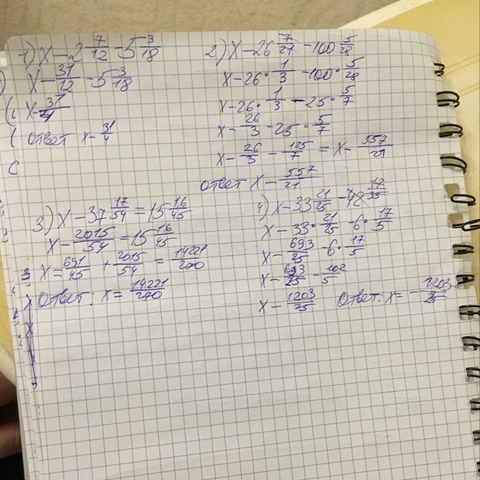 1) x-2 7/12 - 5 3/18
x - 31/12 - 5 3/18
x - 31/4
ответ x - 31/4
2) x-26 7/21 - 100 5/28
x-26· 1/3 - 100· 5/28
x-26· 1/3 - 25· 5/7
x - 26/3 - 25· 5/7
x - 26/3 - 125/7 = x - 557/21
ответ x - 557/21
3) x-37 17/54 = 15 16/45
x - 2015/54 = 15 16/45
x = 691/45 + 2015/54 = 14221/270
Ответ: x = 14221/270
4) x-33 21/25 - 48 17/35
x-33· 21/25 - 6· 17/5
x - 693/25 - 6· 17/5
x - 693/25 - 102/5
x - 1203/25 Ответ: x = - 1203/25